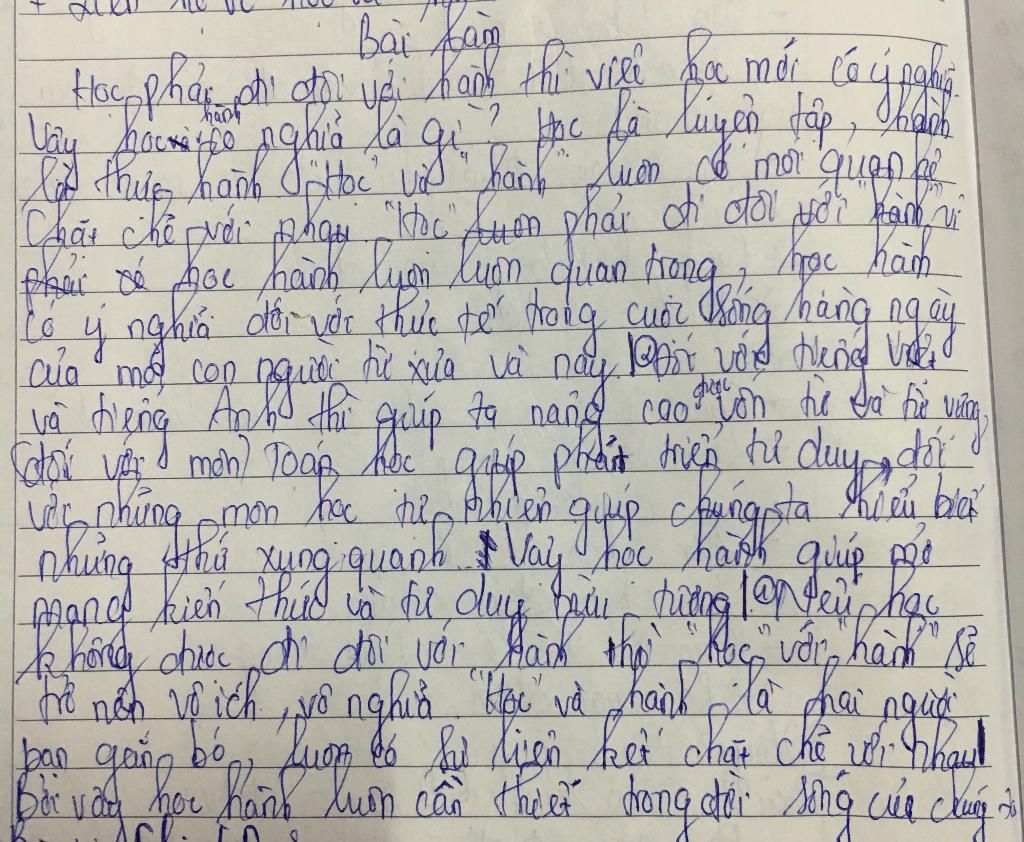 Bài làm
Học phải đi đôi với hành thì viêc học mới có ý nghĩa.
Vây học hành có nghĩa là gì? Học là luyện tập, hành
là thực hành "Học" và "hành" luôn có mối quan hệ
Chặt chẽ với nhau. "Học" luôn phải đi đôi với "hành" vì
học hành luôn luôn quan trọng, học hành
có ý nghĩa đối với thực tế trong cuộc sống hàng ngày
của mỗi con người từ xưa và nay. Đối với tiếng Việt
và tiếng Anh thì giúp ta nâng cao được vốn từ và từ vựng,
(đối với môn) Toán học giúp phát triển tư duy, đối
với những môn học tự nhiên giúp chúng ta hiểu biết
những thứ xung quanh. Vậy học hành giúp mở
mang kiến thức và tư duy trừu tượng. Nếu học
không được đi đôi với hành thì "học" với "hành" sẽ
trở nên vô ích, vô nghĩa "Học" và hành là hai người
bạn gắn bó, luôn có sự liên kết chặt chẽ với nhau
Bởi vậy học hành luôn cần thiết trong đời sống của chúng ta